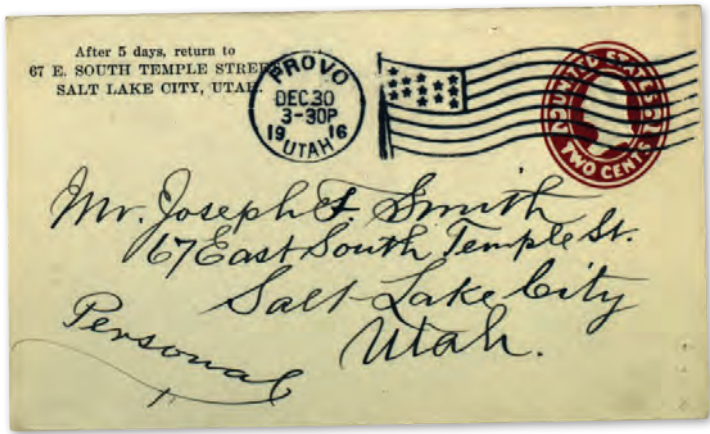 After 5 days, return to
67 E. SOUTH TEMPLE STREET
SALT LAKE CITY, UTAH.
PROVO
DEC 30
3-30P
1916
UTAH
UNITED STATES
TWO CENTS
Mr. Joseph F. Smith
67 East South Temple St.
Salt Lake City
Utah.
Personal